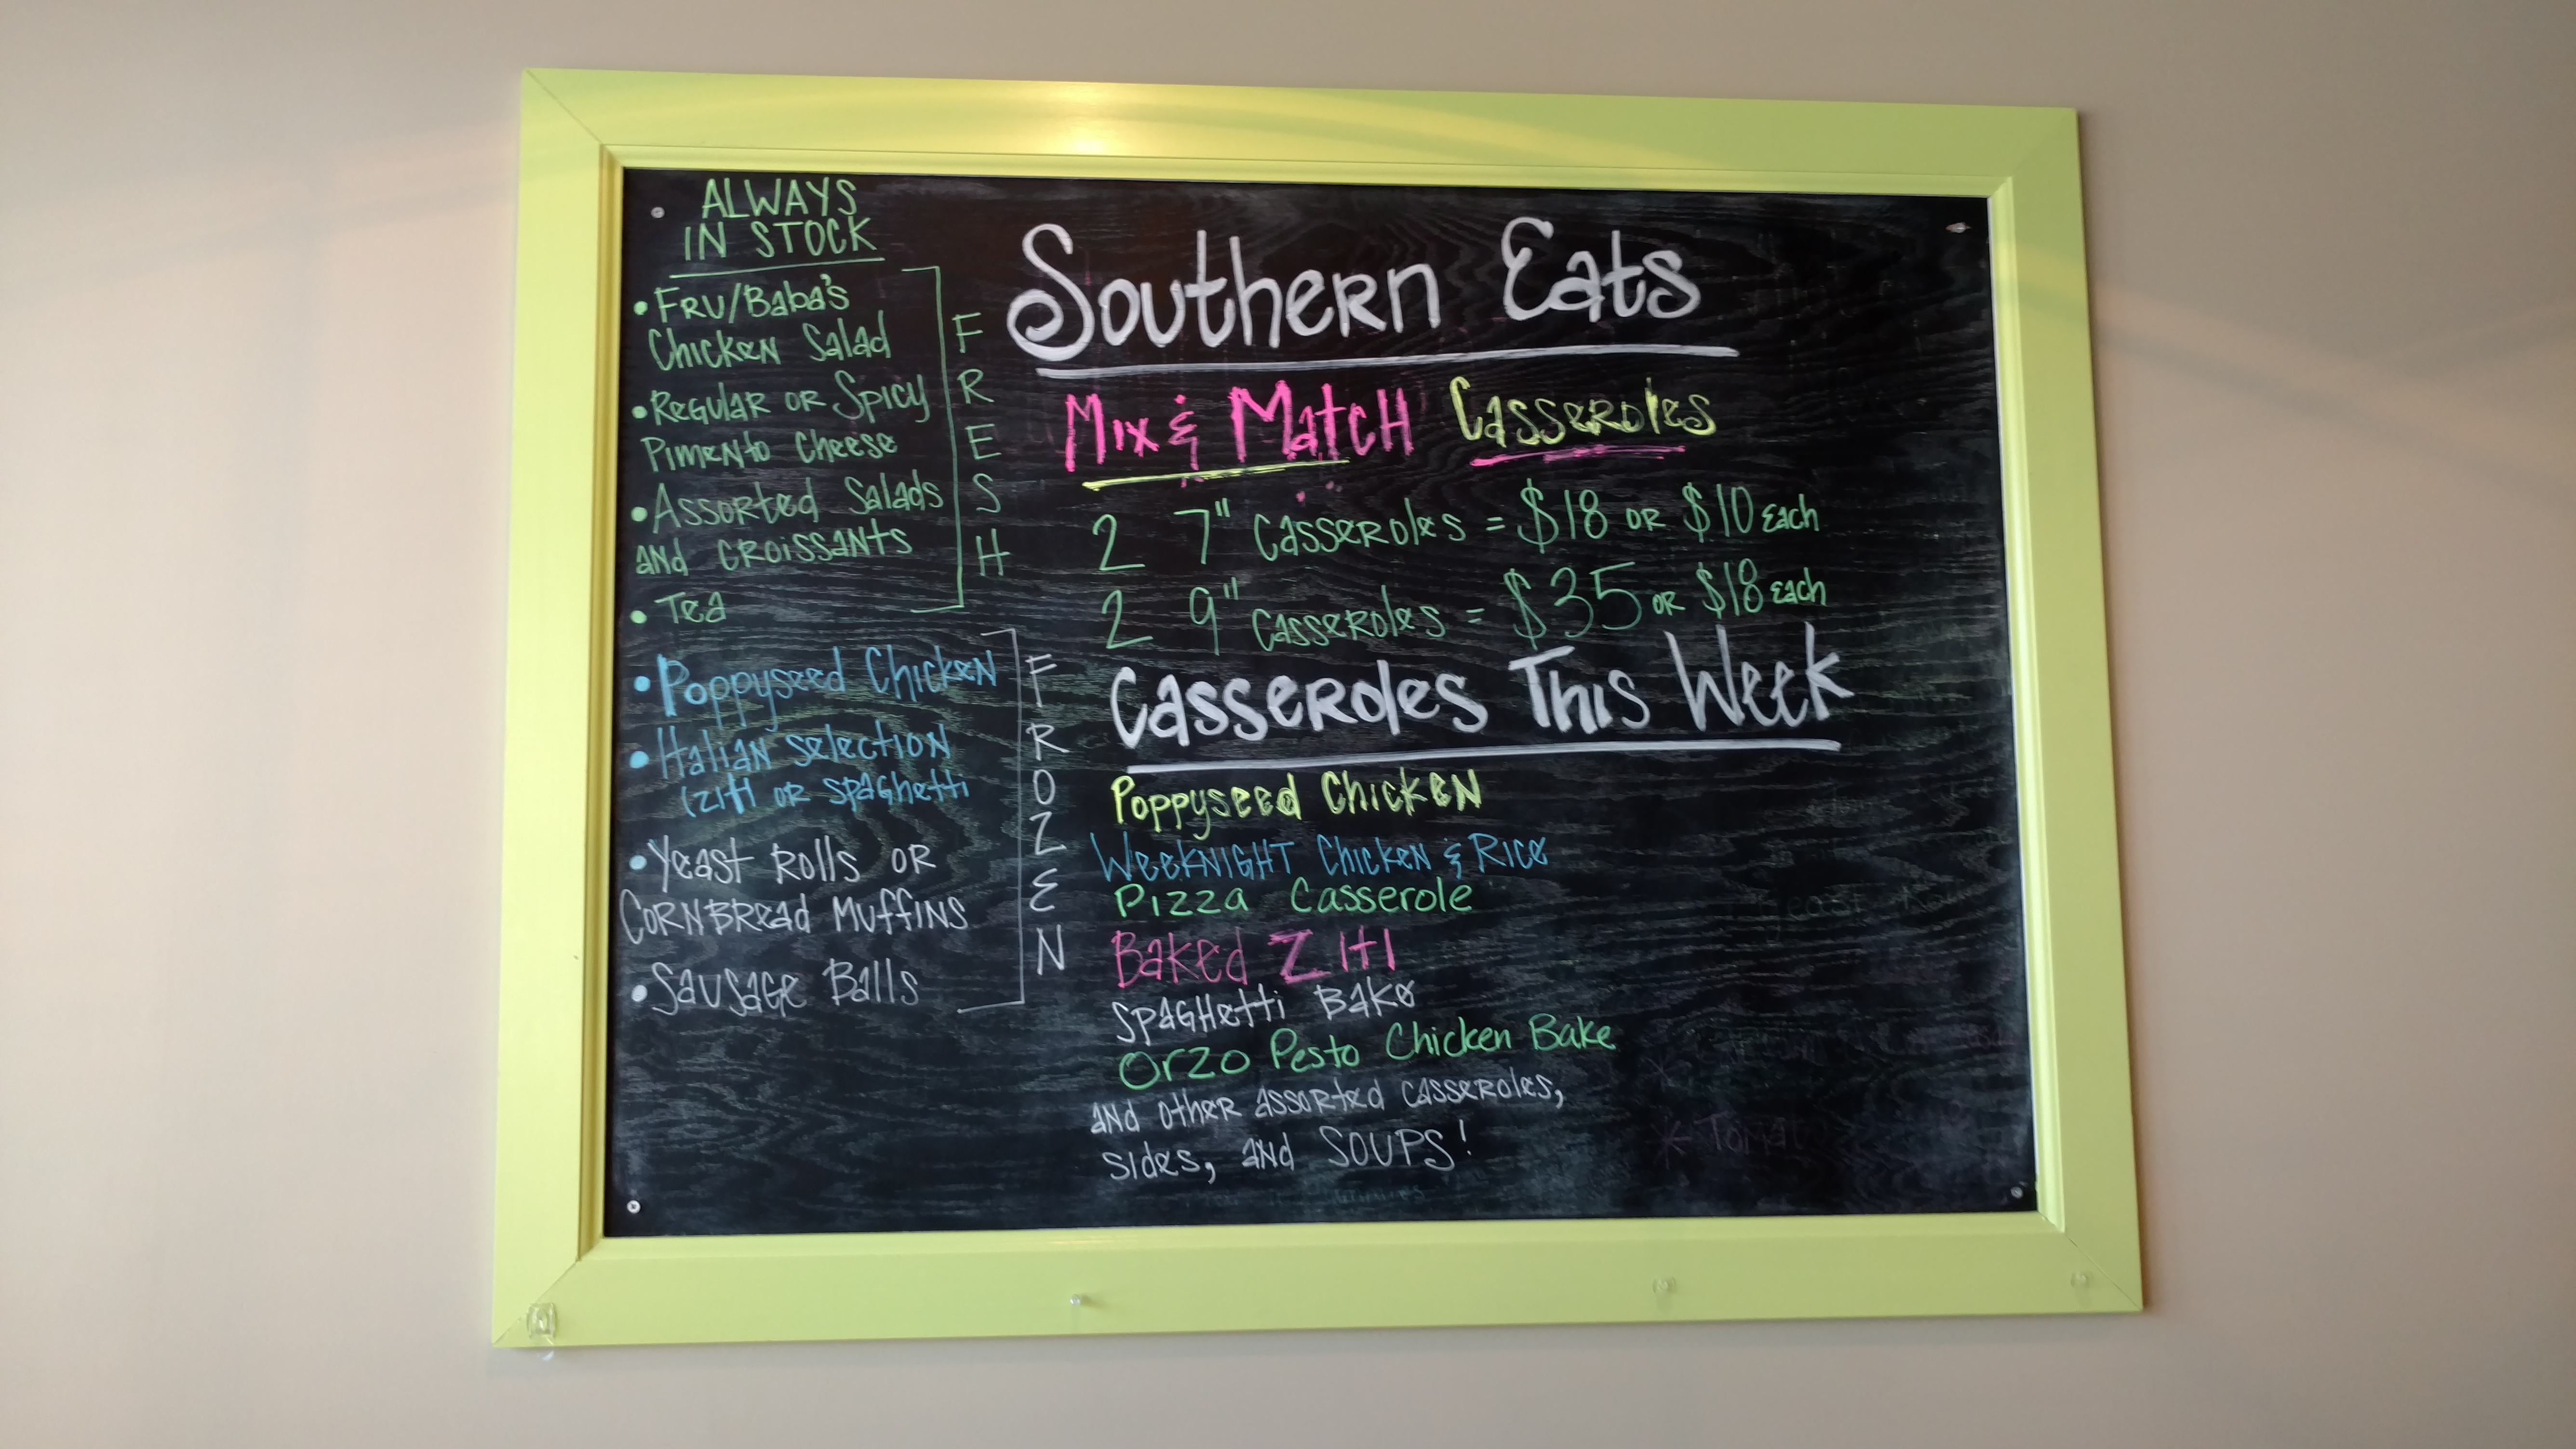 ALWAYS
IN STOCK
• FRU/Baba's
Chicken Salad
• Regular or Spicy
Pimento Cheese
• Assorted Salads
and croissants
• Tea
FRESH
• Poppyseed Chicken
• Italian selection
(ziti or spaghetti
• Yeast Rolls or
Cornbread Muffins
• Sausage Balls
FROZEN
Southern Eats
Mix & Match Casseroles
2 7" Casseroles = $18 or $10 each
2 9" Casseroles = $35 or $18 each
Casseroles This Week
Poppyseed Chicken
Weeknight Chicken & Rice
Pizza Casserole
Baked Ziti
Spaghetti Bake
Orzo Pesto Chicken Bake
and other assorted casseroles,
sides, and SOUPS!